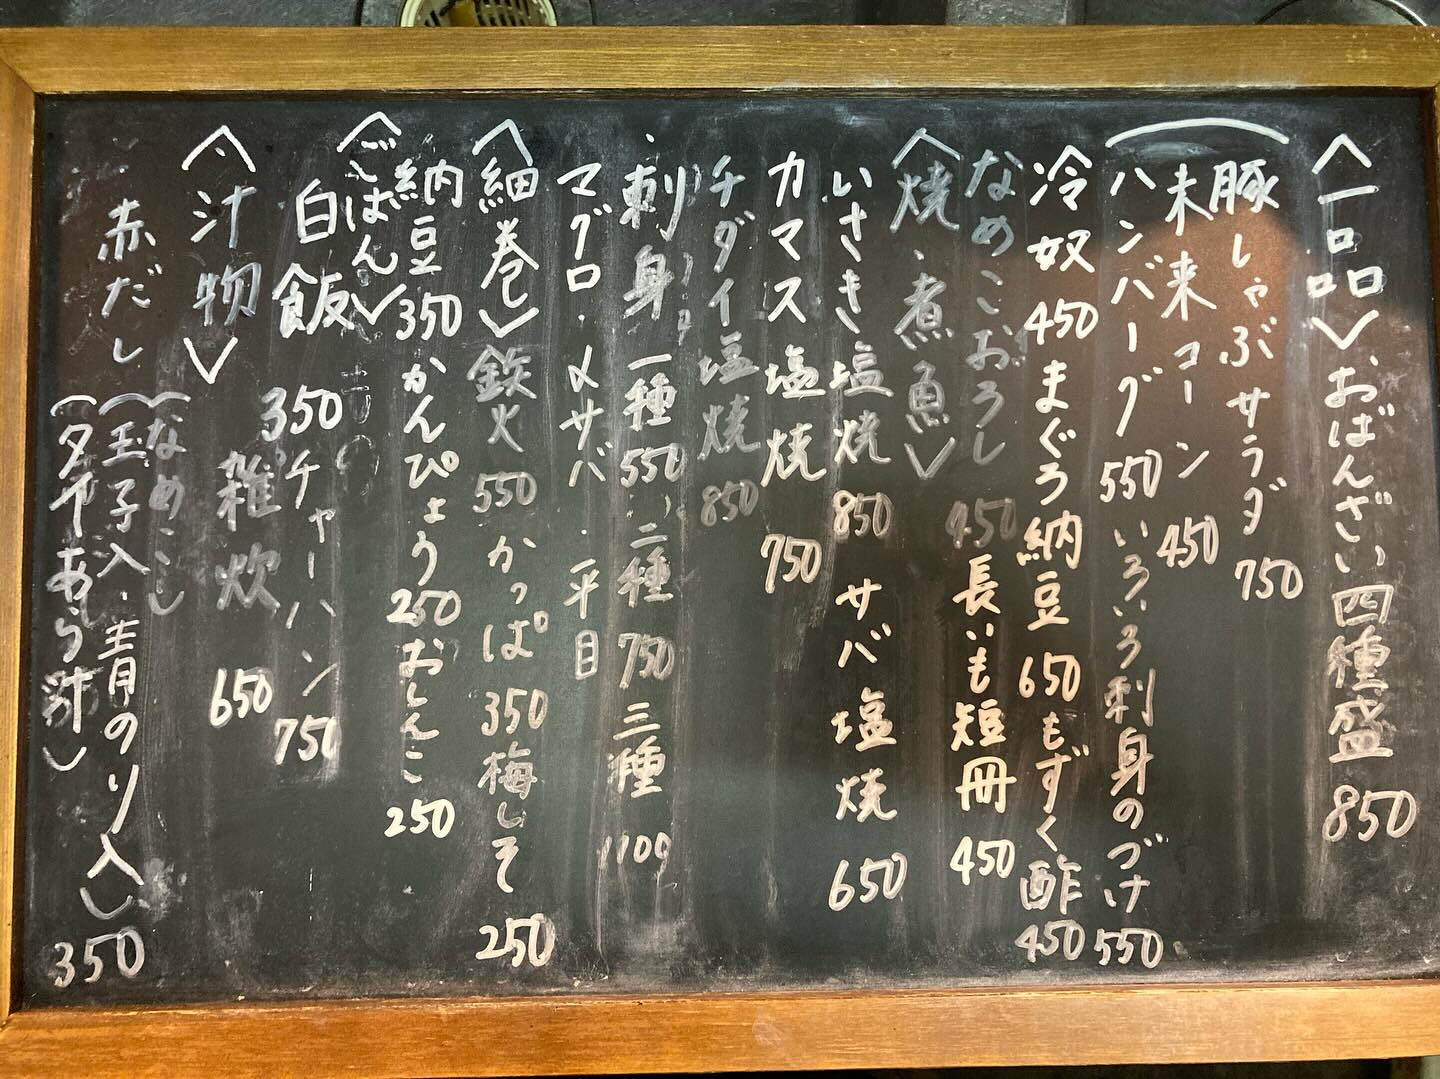 〈一品〉おばんざい四種盛 850
豚しゃぶサラダ 750
未来コーン 450
ハンバーグ 550 いろいろ刺身のづけ 550
冷奴 450 まぐろ納豆 650 もずく酢 450
なめこおろし 450 長いも短冊 450
〈焼・煮魚〉
いさき塩焼 850 サバ塩焼 650
カマス塩焼 750
チダイ塩焼 850
刺身 一種 550 二種 750 三種 1100
マグロ・〆サバ・平目
〈細巻〉鉄火 550 かっぱ 350 梅しそ 250
納豆 350 かんぴょう 250 おしんこ 250
〈ごはん〉
白飯 350 チャーハン 750
雑炊 650
〈汁物〉
赤だし
(なめこ・し
(玉子入・青のり入)
あら汁) 350